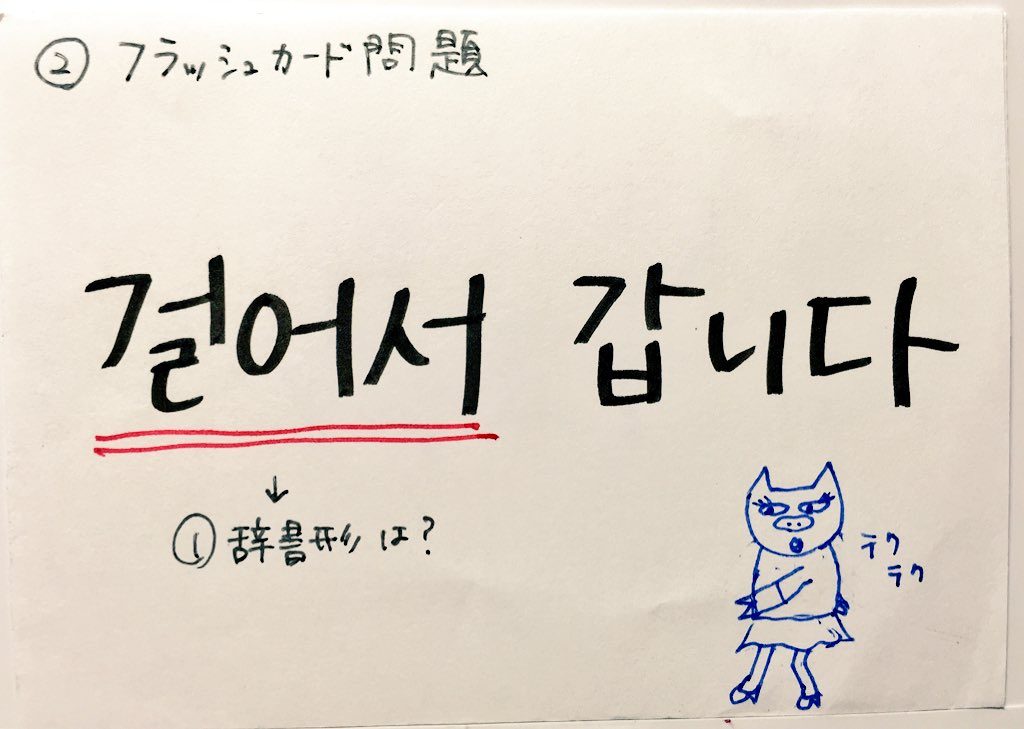 ② フラッシュカード問題
걸어서 갑니다
↓
①辞書形は?
テク
テク